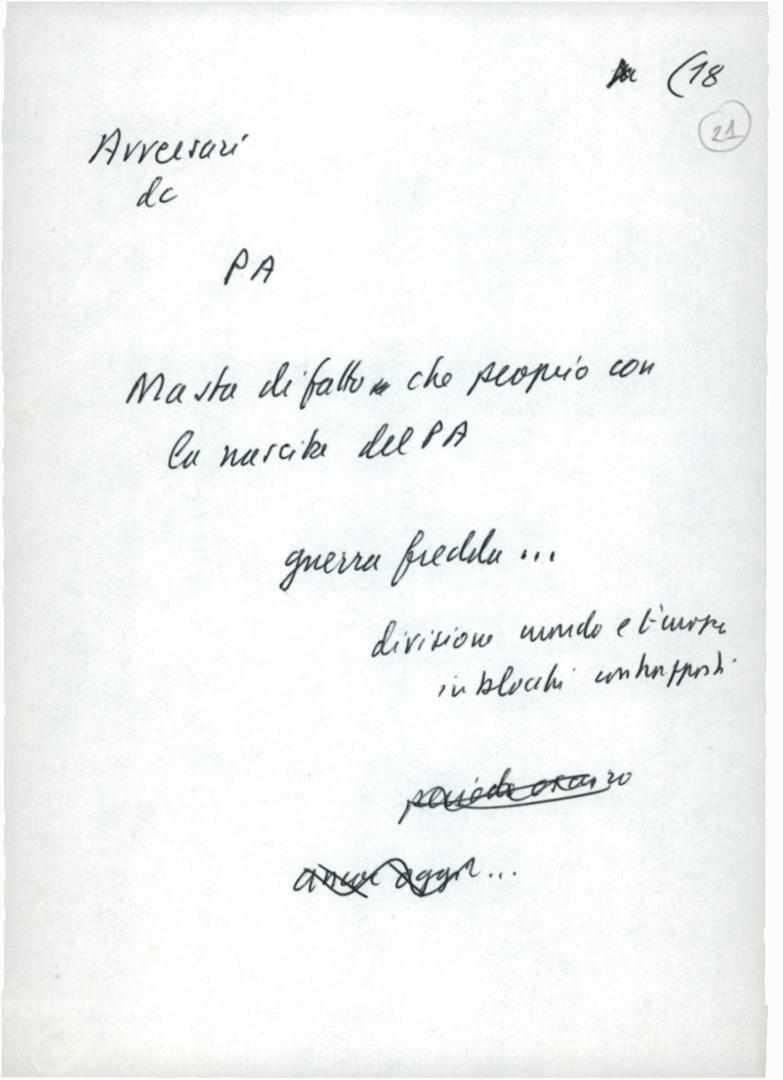 (18
21
Avversari
dc
PA
Ma sta di fatto che proprio con
la nascita del PA
guerra fredda ...
divisione mondo e Europa
in blocchi contrapposti
ancor oggi ...